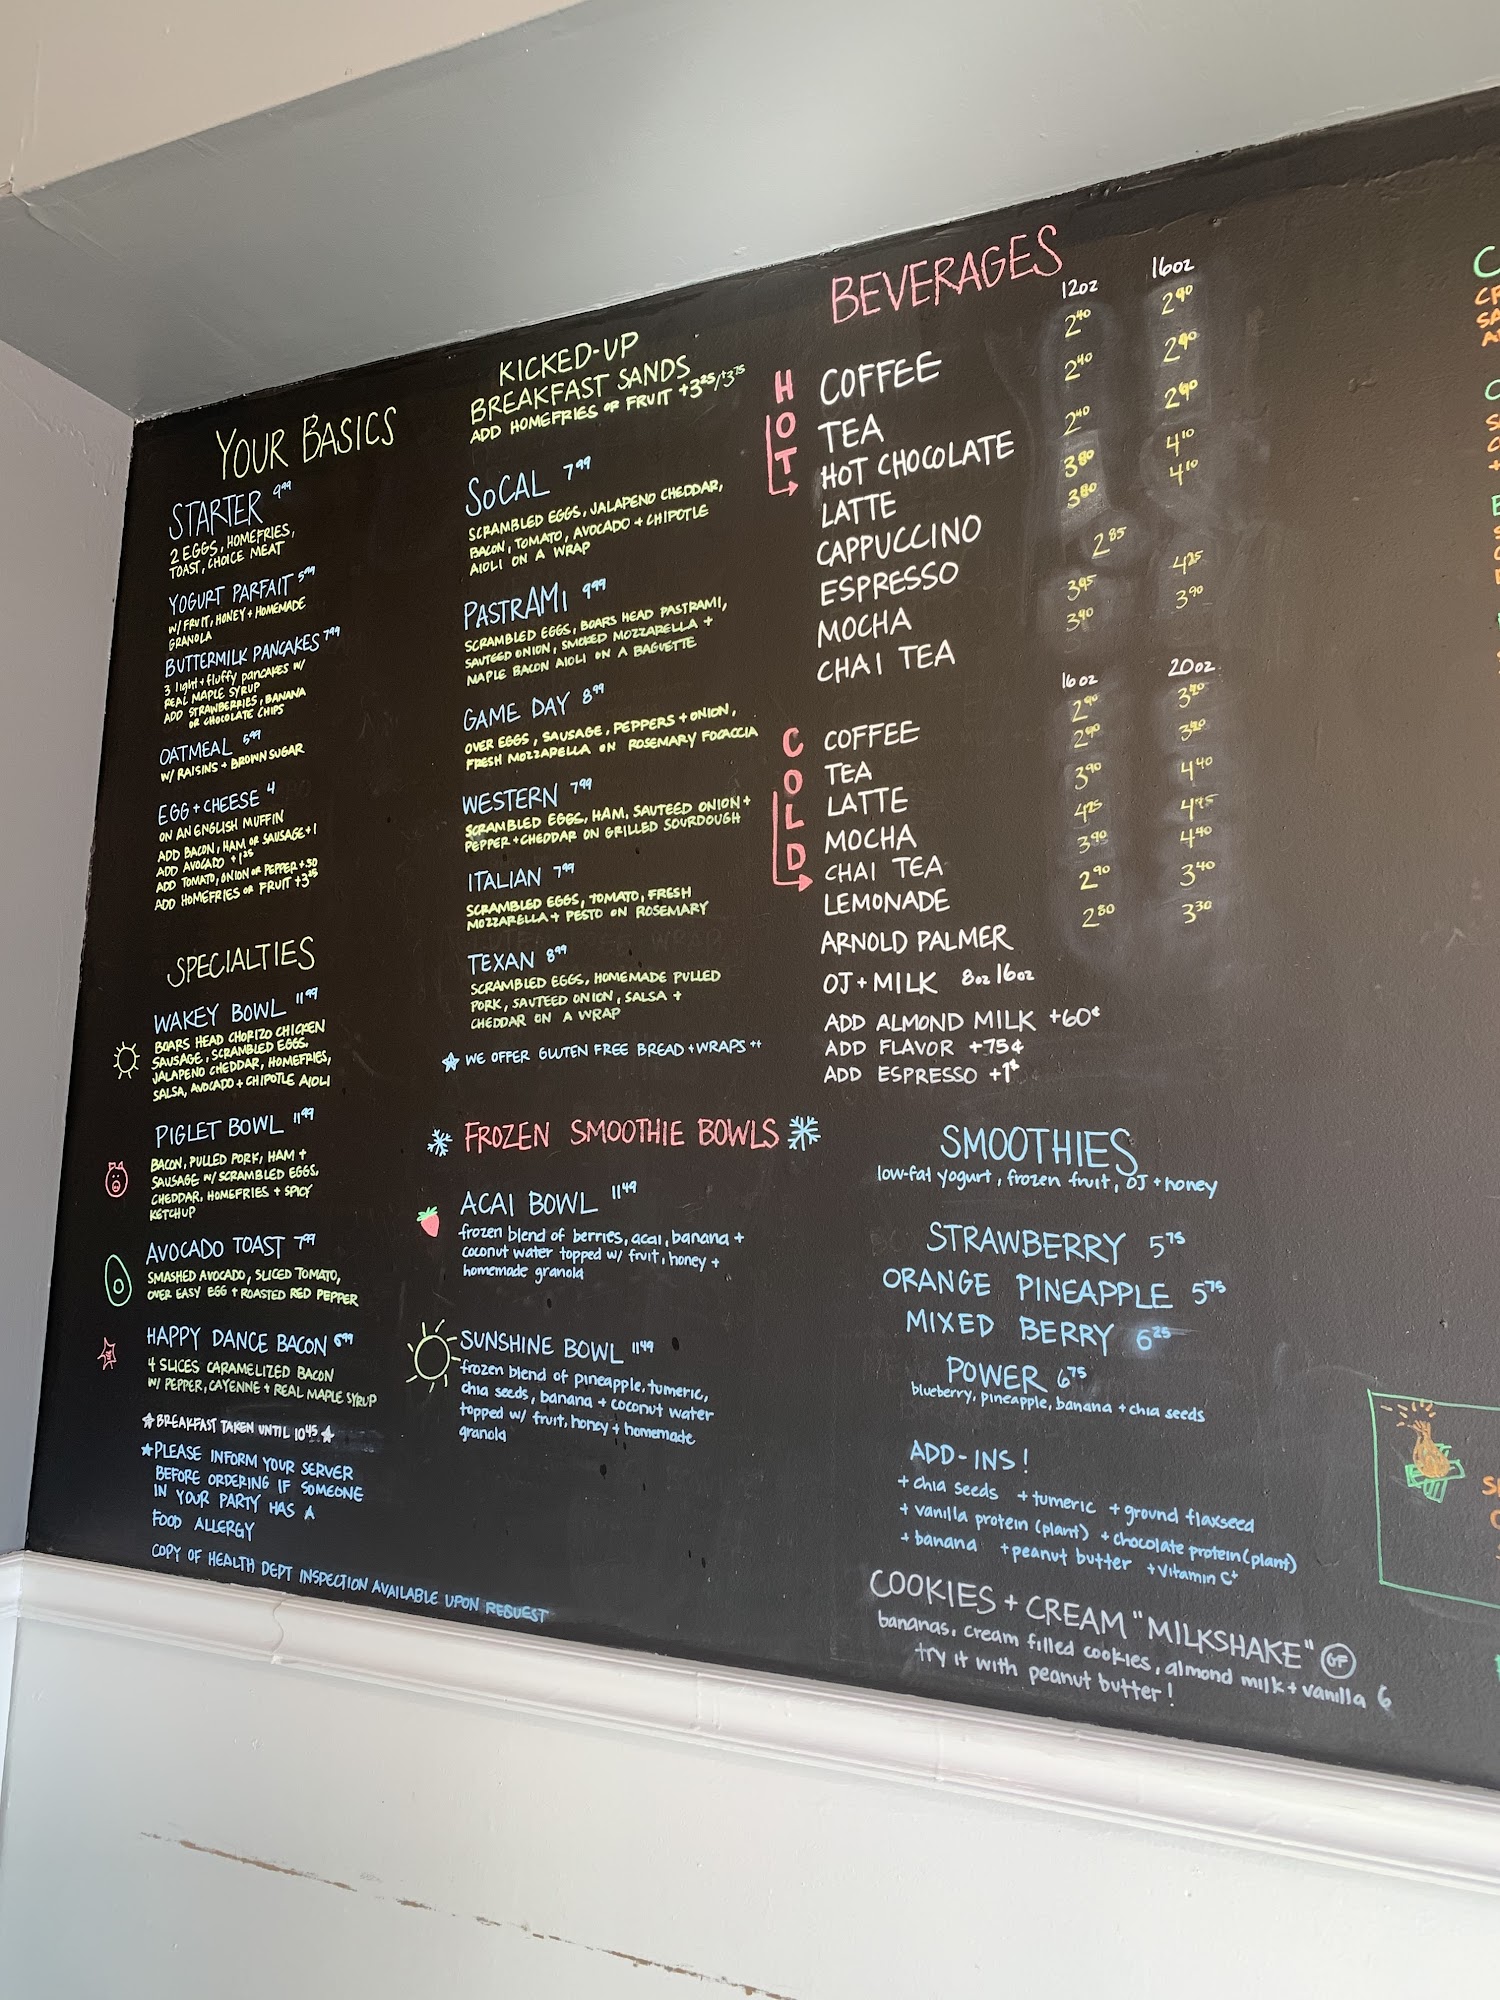 YOUR BASICS
STARTER 9.99
2 EGGS, HOMEFRIES,
TOAST, CHOICE MEAT
YOGURT PARFAIT 5.99
W/ FRUIT, HONEY + HOMEMADE
GRANOLA
BUTTERMILK PANCAKES 7.99
3 light + fluffy pancakes w/
REAL MAPLE SYRUP
ADD STRAWBERRIES, BANANA
OR CHOCOLATE CHIPS
OATMEAL 5.99
W/ RAISINS + BROWN SUGAR
EGG + CHEESE 4
ON AN ENGLISH MUFFIN
ADD BACON, HAM OR SAUSAGE +1
ADD AVOCADO +1.25
ADD TOMATO, ONION OR PEPPER +.50
ADD HOMEFRIES OR FRUIT +3.25
SPECIALTIES
WAKEY BOWL 11.99
BOARS HEAD CHORIZO CHICKEN
SAUSAGE, SCRAMBLED EGGS,
JALAPENO CHEDDAR, HOMEFRIES,
SALSA, AVOCADO + CHIPOTLE AIOLI
PIGLET BOWL 11.99
BACON, PULLED PORK, HAM +
SAUSAGE W/ SCRAMBLED EGGS,
CHEDDAR, HOMEFRIES + SPICY
KETCHUP
AVOCADO TOAST 7.99
SMASHED AVOCADO, SLICED TOMATO,
OVER EASY EGG + ROASTED RED PEPPER
HAPPY DANCE BACON 6.99
4 SLICES CARAMELIZED BACON
W/ PEPPER, CAYENNE + REAL MAPLE SYRUP
★ BREAKFAST TAKEN UNTIL 10:45 ★
★ PLEASE INFORM YOUR SERVER
BEFORE ORDERING IF SOMEONE
IN YOUR PARTY HAS A
FOOD ALLERGY
COPY OF HEALTH DEPT INSPECTION AVAILABLE UPON REQUEST
KICKED-UP
BREAKFAST SANDS
ADD HOMEFRIES OR FRUIT +3.25/+3.75
SOCAL 7.99
SCRAMBLED EGGS, JALAPENO CHEDDAR,
BACON, TOMATO, AVOCADO + CHIPOTLE
AIOLI ON A WRAP
PASTRAMI 9.99
SCRAMBLED EGGS, BOARS HEAD PASTRAMI,
SAUTEED ONION, SMOKED MOZZARELLA +
MAPLE BACON AIOLI ON A BAGUETTE
GAME DAY 8.99
OVER EGGS, SAUSAGE, PEPPERS + ONION,
FRESH MOZZARELLA ON ROSEMARY FOCACCIA
WESTERN 7.99
SCRAMBLED EGGS, HAM, SAUTEED ONION +
PEPPER + CHEDDAR ON GRILLED SOURDOUGH
ITALIAN 7.99
SCRAMBLED EGGS, TOMATO, FRESH
MOZZARELLA + PESTO ON ROSEMARY
TEXAN 8.99
SCRAMBLED EGGS, HOMEMADE PULLED
PORK, SAUTEED ONION, SALSA +
CHEDDAR ON A WRAP
★ WE OFFER GLUTEN FREE BREAD + WRAPS ++
FROZEN SMOOTHIE BOWLS
ACAI BOWL 11.49
frozen blend of berries, acai, banana +
coconut water topped w/ fruit, honey +
homemade granola
SUNSHINE BOWL 11.49
frozen blend of pineapple, tumeric,
chia seeds, banana + coconut water
topped w/ fruit, honey + homemade
granola
BEVERAGES
12oz 16oz
HOT
COFFEE 2.40 2.90
TEA 2.40 2.90
HOT CHOCOLATE 2.40 2.90
LATTE 3.80 4.10
CAPPUCCINO 3.80 4.10
ESPRESSO 2.85
MOCHA 3.95 4.25
CHAI TEA 3.40 3.90
16oz 20oz
COLD
COFFEE 2.90 3.40
TEA 2.90 3.40
LATTE 3.90 4.40
MOCHA 4.25 4.75
CHAI TEA 3.90 4.40
LEMONADE 2.90 3.40
ARNOLD PALMER 2.80 3.30
OJ + MILK 8oz 16oz
ADD ALMOND MILK +60¢
ADD FLAVOR +75¢
ADD ESPRESSO +1
SMOOTHIES
low-fat yogurt, frozen fruit, OJ + honey
STRAWBERRY 5.75
ORANGE PINEAPPLE 5.75
MIXED BERRY 6.25
POWER 6.75
blueberry, pineapple, banana + chia seeds
ADD-INS!
+ chia seeds + tumeric + ground flaxseed
+ vanilla protein (plant) + chocolate protein (plant)
+ banana + peanut butter + Vitamin C+
COOKIES + CREAM "MILKSHAKE" GF
bananas, cream filled cookies, almond milk + vanilla 6
try it with peanut butter!